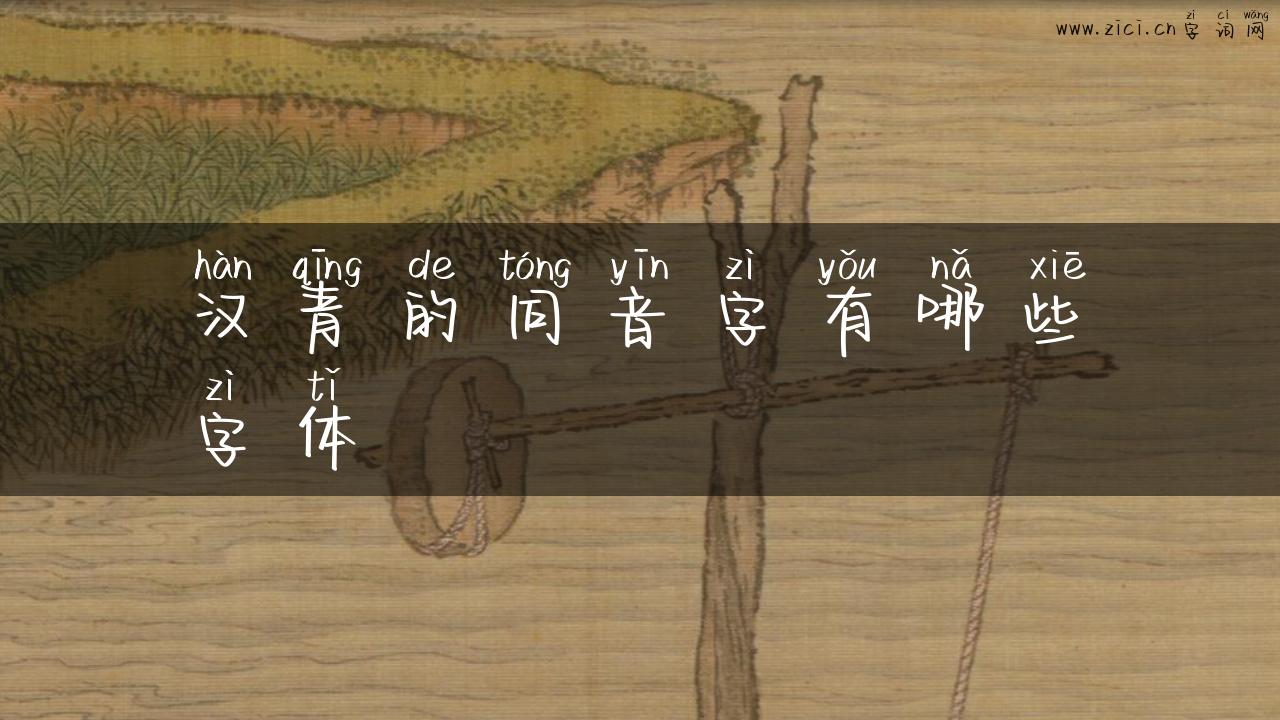 zì cí wǎng
www.zici.cn字词网
hàn qīng de tóng yīn zì yǒu nǎ xiē
汉青的同音字有哪些
zì tǐ
字体